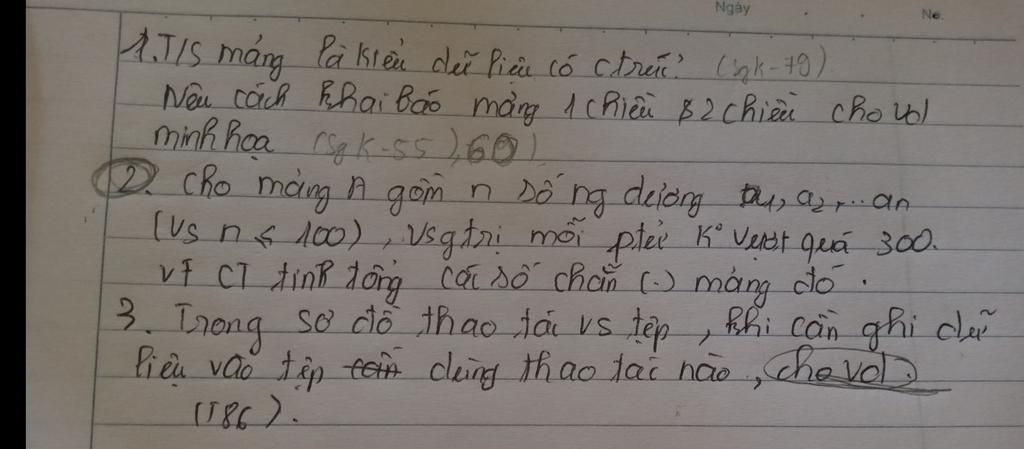 Ngày
No.
1. T/S mảng là kiểu dữ liệu có ctrúc? (sgk-79)
Nêu cách khai báo mảng 1 chiều & 2 chiều cho vd
minh họa (Sgk-55), 60)
2. Cho mảng A gồm n số ng dương a1, a2, .. an
(Vs n ≤ 100), vs gtrị mỗi ptử K° vượt quá 300.
vt CT tính tổng các số chẵn (.) mảng đó.
3. Trong sơ đồ thao tác vs tệp, khi cần ghi dữ
liệu vào tệp dùng thao tác nào, cho vd.
(T86).